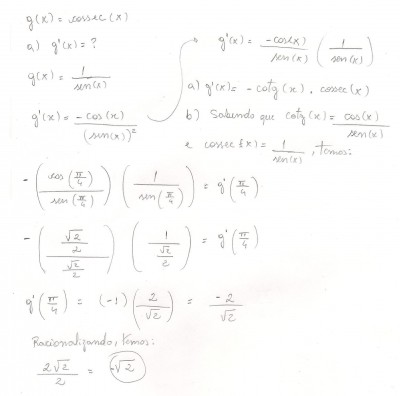 g(x) = cossec(x)
a) g'(x) = ?
g(x) = 1/sen(x)
g'(x) = -cos(x)/(sen(x))²
g'(x) = -cos(x)/sen(x) (1/sen(x))
a) g'(x) = - cotg(x) . cossec(x)
b) Sabendo que cotg(x) = cos(x)/sen(x)
e cossec(x) = 1/sen(x), temos:
- (cos(π/4)/sen(π/4)) (1/sen(π/4)) = g'(π/4)
- ((√2/2)/(√2/2)) (1/(√2/2)) = g'(π/4)
g'(π/4) = (-1) (2/√2) = -2/√2
Racionalizando, temos:
2√2/2 = -√2